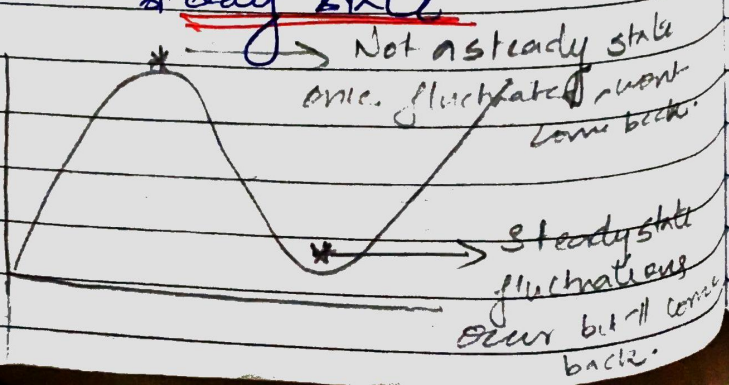 steady state
Not a steady state
once fluctuated, wont
come back.
Steady state
fluctuations
occur but'll come
back.